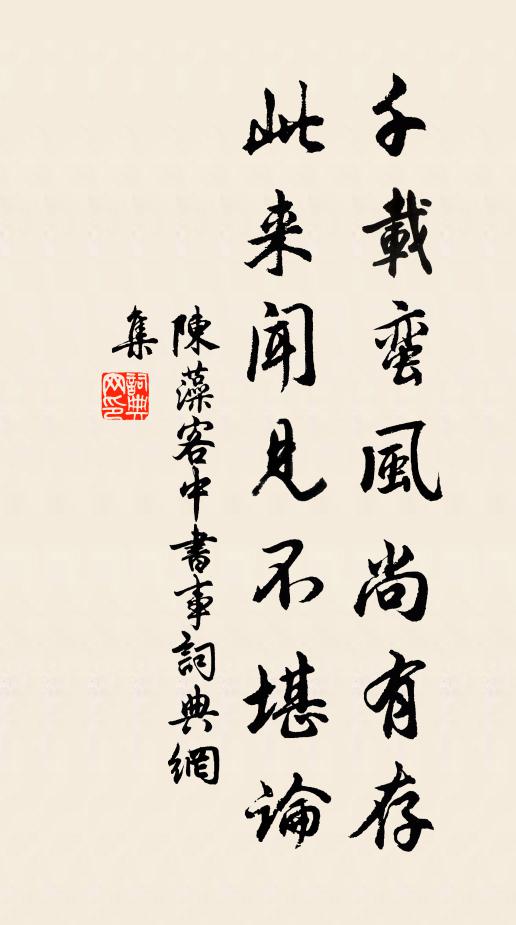 千載蛮風尚有存
此来聞見不堪論
陳藻客中書事詞典網
集
詞典
网印